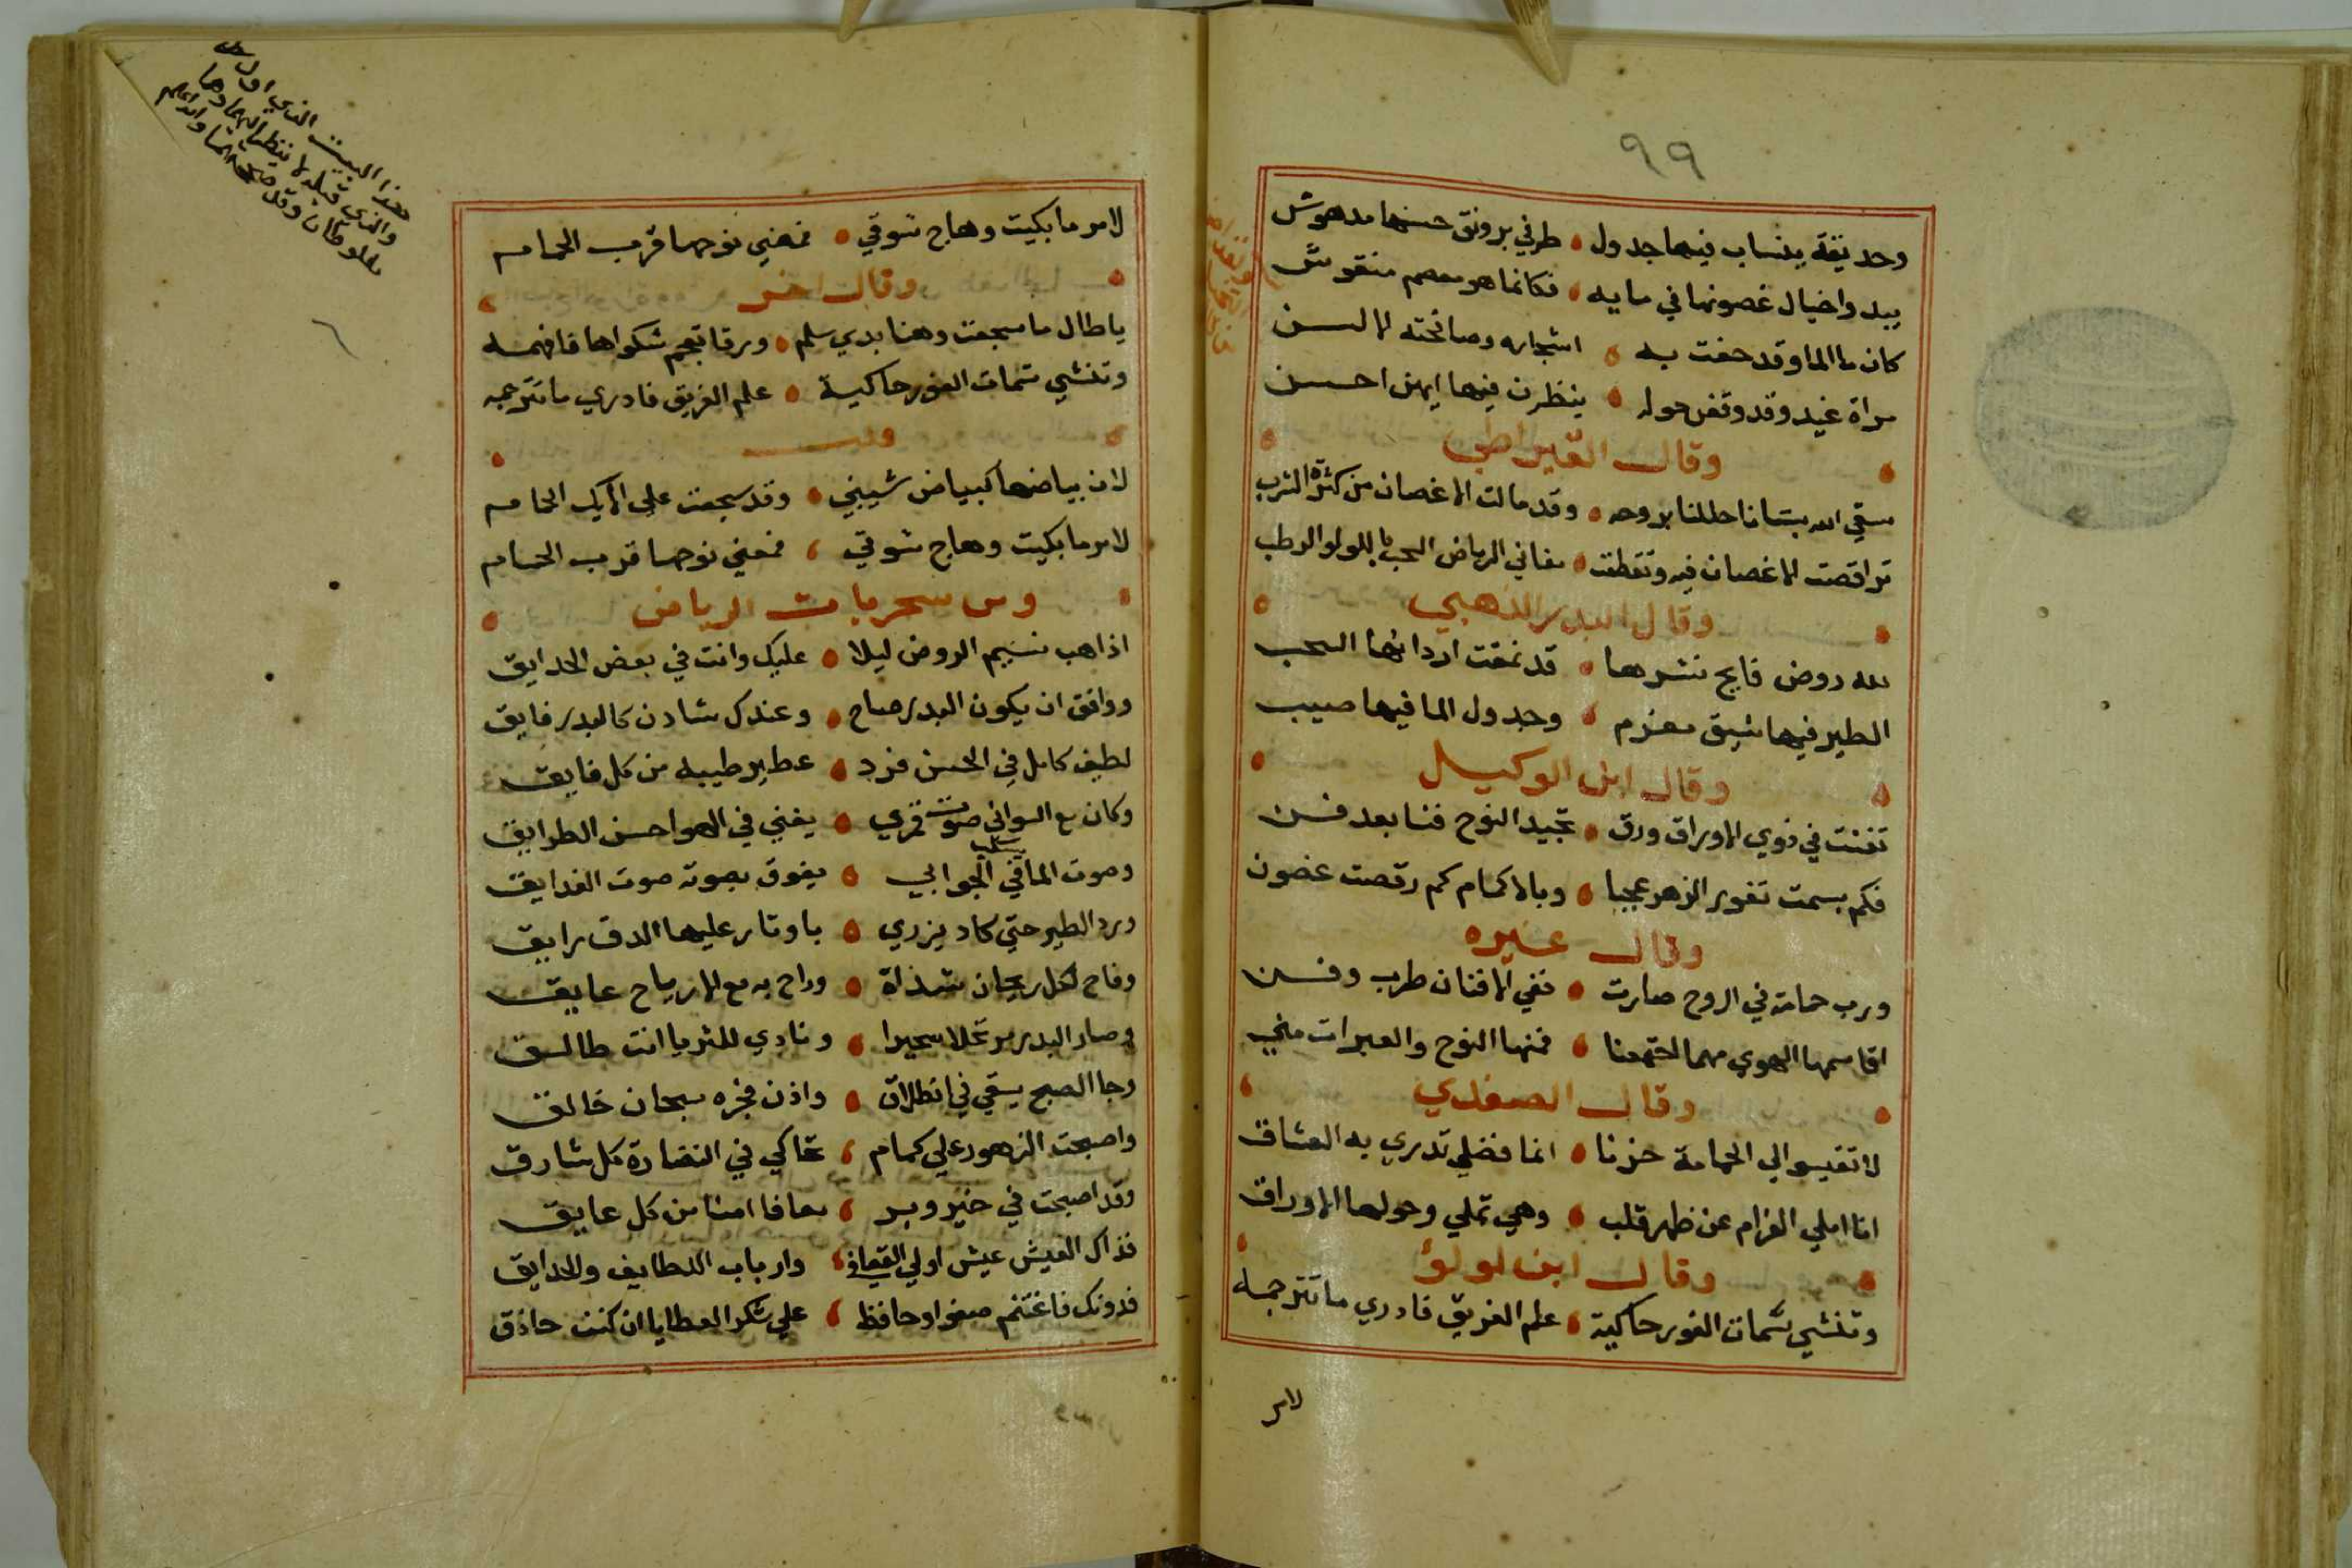 ٩٩
وحديقة ينساب فيها جدول ه طرفي برونق حسنها مدهوش
يبدوا خيال غصونها في مايه ه فكانما هو معصم منقوش
كان ما الما وقد حفت به ه اشجاره وصافحته الالسن
مراة غيد وقد وقفن حوله ه ينظرن فيها ايهن احسن
وقال القيراطي
سقي الله بستانا حللنا بروحه ه وقد مالت الاغصان من كثرة الشرب
تراقصت الاغصان فيه ونقطت ه مغاني الرياض السحب باللولو الرطب
وقال البدر الذهبي
لله روض فايح نشرها ه قد نمقت اردانها السحب
الطير فيها شيق مغرم ه وجدول الما فيها صبب
وقال ابن الوكيل
تغنت في ذوي الاوراق ورق ه تجيد النوح فنا بعد فن
فكم بسمت ثغور الزهر عجبا ه وبالاكمام كم رقصت غصون
وقال غيره
ورب حمامة في الروح صارت ه تغني الافنان طرب وفن
اقاسمها الهوي مهما اجتمعنا ه فمنها النوح والعبرات مني
وقال الصفدي
لا تقيسو الي الحمامة حزنا ه انما فضلي تدري به العشاق
انا املي الغرام عن ظهر قلب ه وهي تملي وحولها الاوراق
وقال ابن لولؤ
وتنشي شمات الغور حاكية ه علم الفريق فادري ما تترجمه
لامر
لامر ما بكيت وهاج شوقي ه فمغني نوحها قرب الحمام
وقال اخر
يا طال ما سجعت وهنا بدي سلم ه ورقا تعجم شكواها فافهمه
وتنشي شمات الغور حاكية ه علم الفريق فادري ما تترجمه
وله
لان بياضها كبياض شيبي ه وقد سجعت علي الايك الحمام
لامر ما بكيت وهاج شوقي ه فمغني نوحها قرب الحمام
ومن سحريات الرياض
اذا هب نسيم الروض ليلا ه عليك وانت في بعض الحدايق
ووافق ان يكون البدر صاح ه وعندك شادن كالبدر فايق
لطيف كامل في الحسن فرد ه عطير طيبه من كل فايق
وكان مع السواني صوت قمري ه يغني في الهوا حسن الطرايق
وصوت الما في الجوابي ه يفوق بصوته صوت الغدايق
ورد الطير حتي كاد يزري ه باوتار عليها الدق رايق
وفاح لكل ريحان شذاة ه وراح به مع الارياح عايق
وصار البدر مرتحلا سحيرا ه ونادي للثريا انت طالق
وجا الصبح يسقي في انطلاق ه واذن فجره سبحان خالق
واصبحت الزهور علي كمام ه تحاكي في النضارة كل شارق
وقد اصبحت في خير وبر ه معافا امنا من كل عايق
فذاك العيش عيش اولي ه وارباب اللطايف والحدايق
فدونك فاغتنم صفوا وحافظ ه علي شكر العطايا ان كنت حاذق
هذا البيت الذي اول
والذي قبله لا